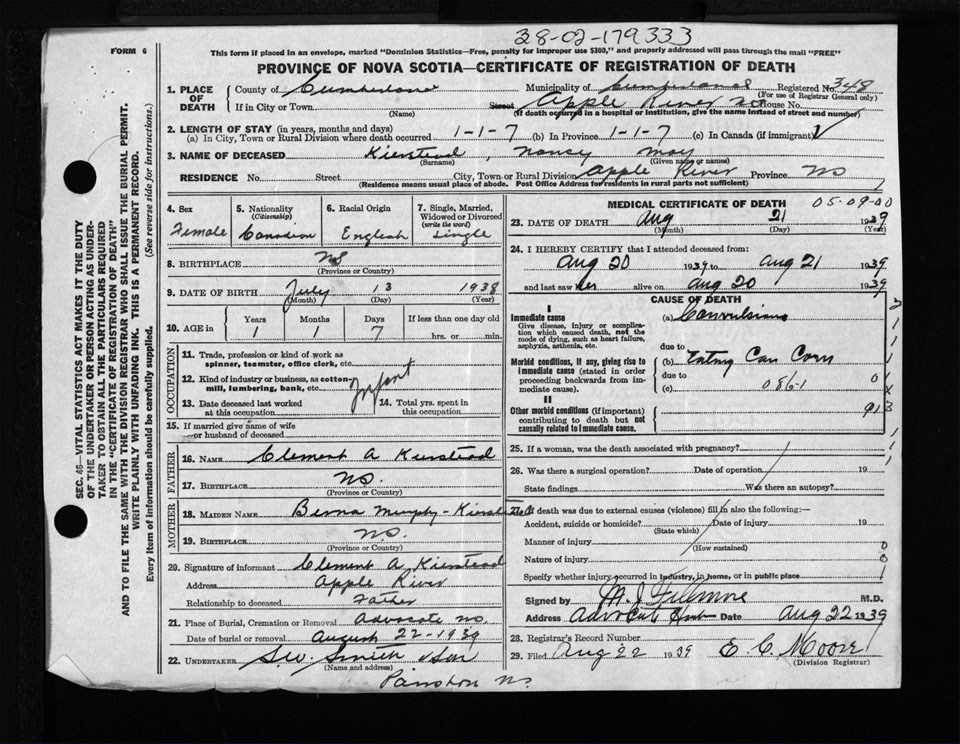 38-02-179333
FORM 6
This form if placed in an envelope, marked "Dominion Statistics—Free, penalty for improper use $300," and properly addressed will pass through the mail "FREE"
PROVINCE OF NOVA SCOTIA—CERTIFICATE OF REGISTRATION OF DEATH
1. PLACE OF DEATH
County of Cumberland
Municipality of Cumberland Registered No. 348
(For use of Registrar General only)
If in City or Town
(Name)
Street Apple River NS House No.
(If death occurred in a hospital or institution, give the name instead of street and number)
2. LENGTH OF STAY (in years, months and days)
(a) In City, Town or Rural Division where death occurred 1-1-7 (b) In Province 1-1-7 (c) In Canada (if immigrant)
3. NAME OF DECEASED Kierstead, Nancy May
(Surname) (Given name or names)
RESIDENCE No. Street City, Town or Rural Division Apple River Province NS
(Residence means usual place of abode. Post Office Address for residents in rural parts not sufficient)
4. Sex Female
5. Nationality (Citizenship) Canadian
6. Racial Origin English
7. Single, Married, Widowed or Divorced (write the word) Single
8. BIRTHPLACE NS
(Province or Country)
9. DATE OF BIRTH July 13 1938
(Month) (Day) (Year)
10. AGE in Years Months Days If less than one day old
1 1 7 hrs. or min.
OCCUPATION
11. Trade, profession or kind of work as spinner, teamster, office clerk, etc.
12. Kind of industry or business, as cotton-mill, lumbering, bank, etc. Infant
13. Date deceased last worked at this occupation
14. Total yrs. spent in this occupation
15. If married give name of wife or husband of deceased
FATHER
16. NAME Clement A Kierstead
17. BIRTHPLACE NS.
(Province or Country)
MOTHER
18. MAIDEN NAME Murphy-Kierstead
19. BIRTHPLACE N.S.
(Province or Country)
20. Signature of informant Clement A Kierstead
Address Apple River
Relationship to deceased Father
21. Place of Burial, Cremation or Removal Advocate NS
Date of burial or removal August 22-1939
22. UNDERTAKER Smith & Son
(Name and address)
NS.
MEDICAL CERTIFICATE OF DEATH
05-09-00
23. DATE OF DEATH Aug 21 1939
(Month) (Day) (Year)
24. I HEREBY CERTIFY that I attended deceased from:
Aug 20 1939 to Aug 21 1939
and last saw her alive on Aug 20 1939
CAUSE OF DEATH
I
Immediate cause
Give disease, injury or complication which caused death, not the mode of dying, such as heart failure, asphyxia, asthenia, etc.
(a) Convulsions
due to
Morbid conditions, if any, giving rise to immediate cause (stated in order proceeding backwards from immediate cause).
(b) Eating Can Corn
due to
(c) 086-1
II
Other morbid conditions (if important) contributing to death but not causally related to immediate cause.
25. If a woman, was the death associated with pregnancy?
26. Was there a surgical operation? Date of operation 19
State findings Was there an autopsy?
If death was due to external causes (violence) fill in also the following:—
Accident, suicide or homicide? Date of injury 19
(State which)
Manner of injury
(How sustained)
Nature of injury
Specify whether injury occurred in industry, in home, or in public place
Signed by M. J. Fillmore M.D.
Address Advocate Date Aug 22 1939
28. Registrar's Record Number
29. Filed Aug 22 1939 E. C. Moore
(Division Registrar)
SEC. 46—VITAL STATISTICS ACT MAKES IT THE DUTY
OF THE UNDERTAKER OR PERSON ACTING AS UNDER-
TAKER TO OBTAIN ALL THE PARTICULARS REQUIRED
IN THE "CERTIFICATE OF REGISTRATION OF DEATH"
AND TO FILE THE SAME WITH THE DIVISION REGISTRAR WHO SHALL ISSUE THE BURIAL PERMIT.
WRITE PLAINLY WITH UNFADING INK. THIS IS A PERMANENT RECORD.
Every item of information should be carefully supplied. (See reverse side for instructions.)